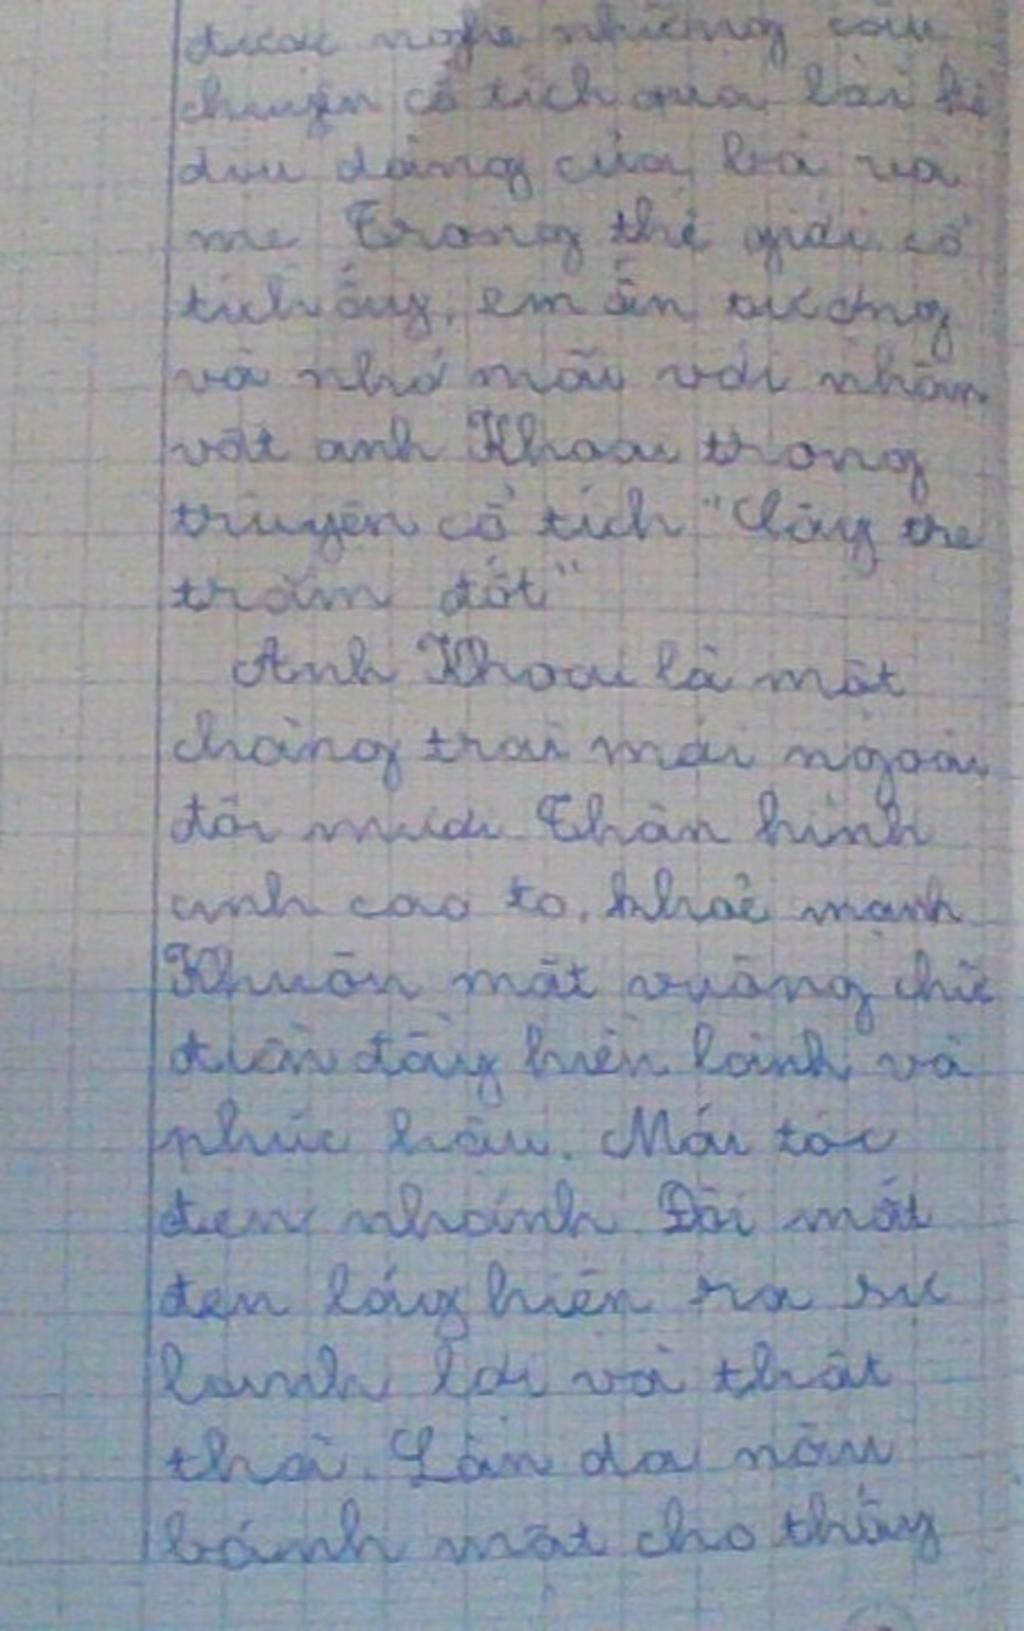 được nghe những câu
chuyện cổ tích qua lời kể
dịu dàng của bà và
mẹ. Trong thế giới cổ
tích ấy, em ấn tượng
và nhớ mãi với nhân
vật anh Khoai trong
truyện cổ tích "Cây tre
trăm đốt"
Anh Khoai là một
chàng trai mới ngoài
đôi mươi. Thân hình
anh cao to, khoẻ mạnh
Khuôn mặt vuông chữ
điền đầy hiền lành và
phúc hậu. Mái tóc
đen nhánh. Đôi mắt
đen láy hiện ra sự
lanh lợi và thật
thà. Làn da nâu
bánh mật cho thấy